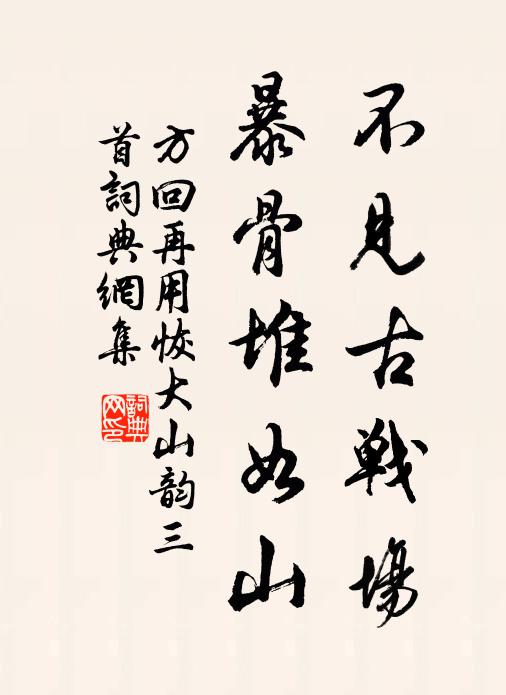 不見古戰場
暴骨堆如山
方回再用恢大山韵三
首詞典網集
詞典
网印